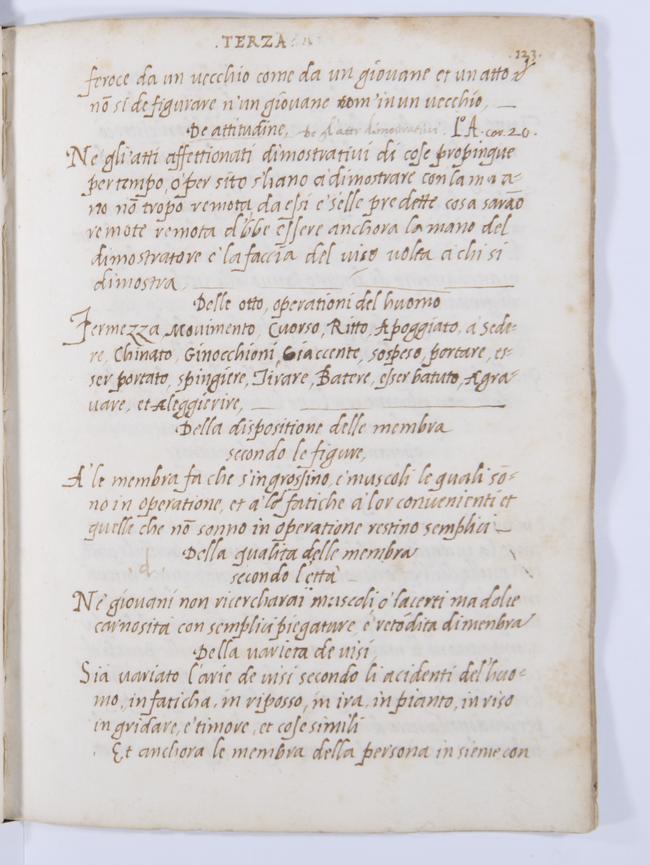 .TERZA.
.123.
feroce da un vecchio come da un giovane et un atto
nõ si de figurare n'un giovane com' in un vecchio,
De attitudine, De gl'atti dimostrativi. Lº A. car. 20.
Ne gli atti affettionati dimostrativi di cose propinque
per tempo, o per sito s'hano a dimostrare con la ma
no nõ tropo remota da essi e' selle predette cosa sarão
remote remota debbe essere anchora la mano del
dimostratore e' la faccia del viso volta a chi si
dimostra
Delle otto, operationi del huomo
Fermezza, Movimento, Cuorso, Ritto, Apoggiato, a' Sede-
re, Chinato, Ginocchioni, Giaccente, sospeso, portare, es-
ser portato, spingiere, Tirare, Batere, esser batuto, Agra-
vare, et Aleggierire,
Della dispositione delle membra
secondo le figure,
A' le membra fa che s'ingrossino, e' muscoli le quali sõ-
no in operatione, et a' le fatiche a' lor convenienti et
quelle che nõ sonno in operatione restino semplici
Della qualita delle membra
secondo l'etta
Ne' giovani non ricercharai muscoli o' lacerti ma dolce
carnosita con semplici piegature, e' retodita di menbra
Della varieta de visi
Sia variato l'arie de visi secondo li acidenti del huo-
mo, in faticha, in riposso, in ira, in pianto, in riso
in gridare, e' timore, et cose simili
Et anchora le membra della persona insieme con